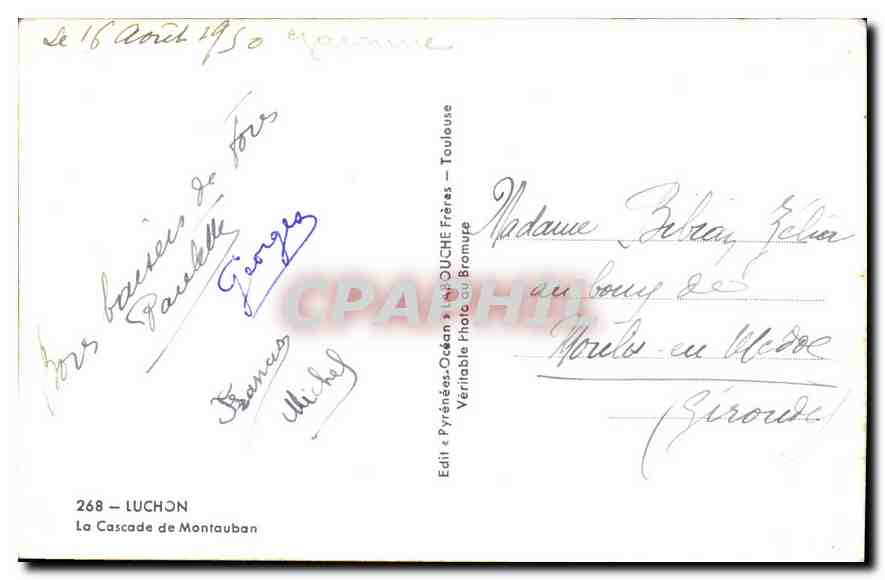 Le 16 Août 1950
Bons baisers de Tous
Paulette
Georges
Francis
Michel
268 — LUCHON
La Cascade de Montauban
Edit « Pyrénées-Océan » LABOUCHE Frères — Toulouse
Véritable Photo au Bromure
CPAPHIL
Madame Zélia
au bourg de
Moulis en Medoc
(Gironde)